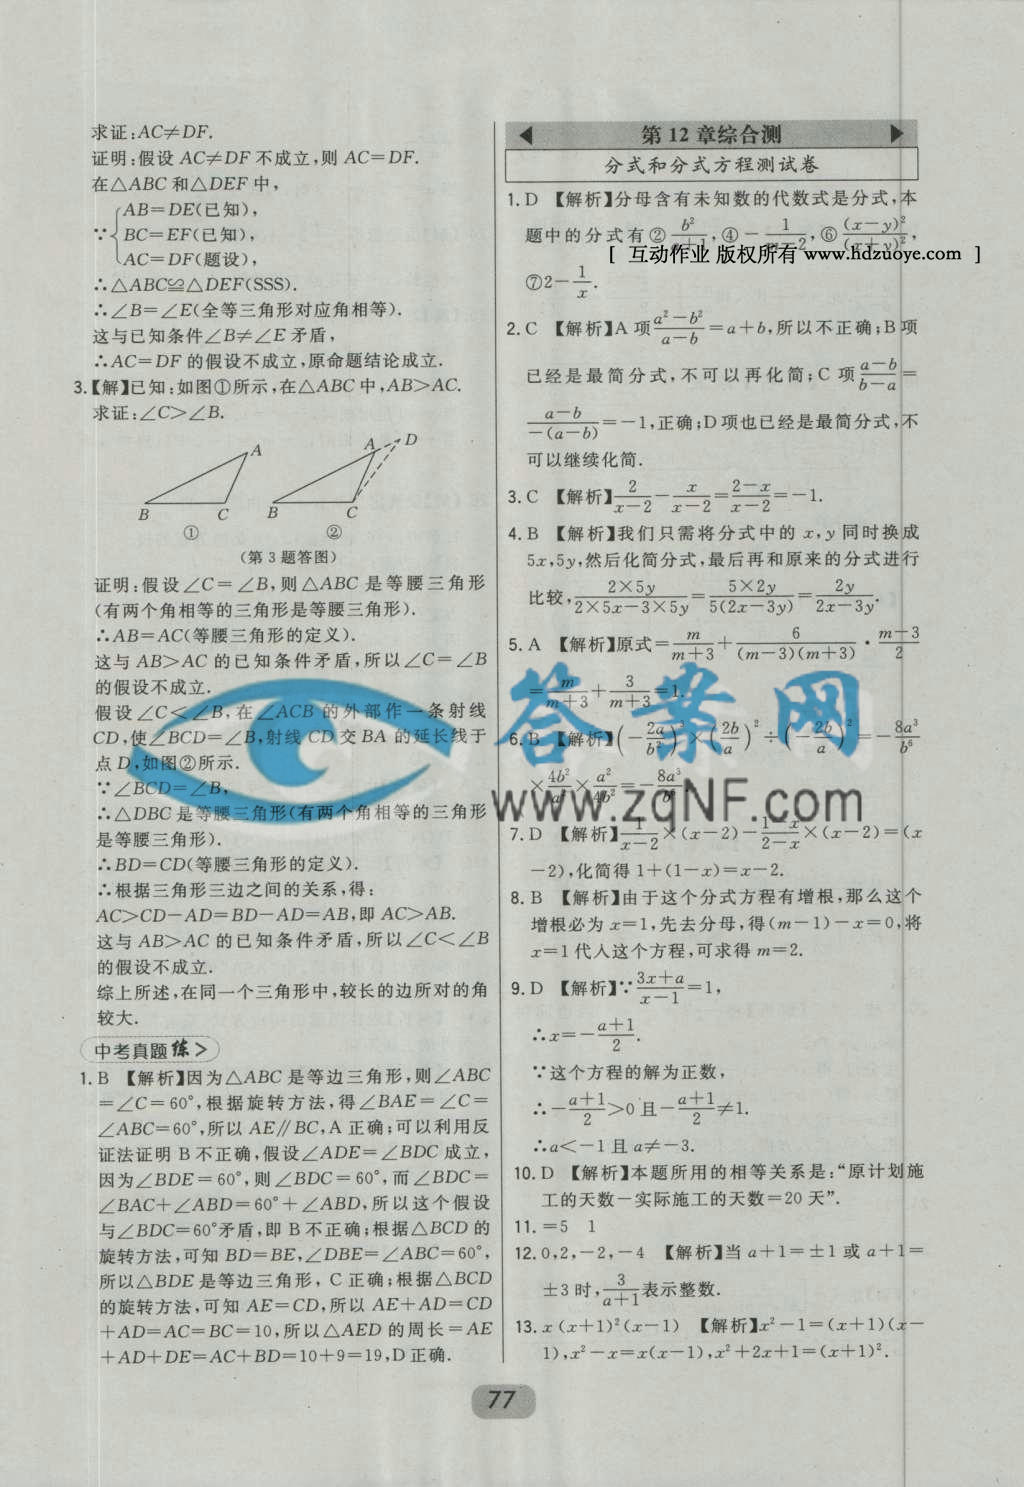 求证:AC≠DF.
证明:假设 AC≠DF 不成立,则 AC=DF.
在△ABC 和△DEF 中,
AB=DE(已知),
∵ BC=EF(已知),
AC=DF(题设),
∴△ABC≌△DEF(SSS).
∴∠B=∠E(全等三角形对应角相等).
这与已知条件∠B≠∠E 矛盾,
∴AC=DF 的假设不成立,原命题结论成立.
3.【解】已知:如图①所示,在△ABC 中,AB>AC.
求证:∠C>∠B.
A B C ①
A D B C ②
(第 3 题答图)
证明:假设∠C=∠B,则△ABC 是等腰三角形
(有两个角相等的三角形是等腰三角形).
∴AB=AC(等腰三角形的定义).
这与 AB>AC 的已知条件矛盾,所以∠C=∠B
的假设不成立.
假设∠C<∠B,在∠ACB 的外部作一条射线
CD,使∠BCD=∠B,射线 CD 交 BA 的延长线于
点 D,如图②所示.
∵∠BCD=∠B,
∴△DBC 是等腰三角形(有两个角相等的三角形
是等腰三角形).
∴BD=CD(等腰三角形的定义).
∴根据三角形三边之间的关系,得:
AC>CD-AD=BD-AD=AB,即 AC>AB.
这与 AB>AC 的已知条件矛盾,所以∠C<∠B
的假设不成立.
综上所述,在同一个三角形中,较长的边所对的角
较大.
中考真题练>
1. B 【解析】因为△ABC 是等边三角形,则∠ABC
=∠C=60°,根据旋转方法,得∠BAE=∠C=
∠ABC=60°,所以 AE∥BC,A 正确;可以利用反
证法证明 B 不正确,假设∠ADE=∠BDC 成立,
因为∠BDE=60°,则∠BDC=60°,而∠BDC=
∠BAC+∠ABD=60°+∠ABD,所以这个假设
与∠BDC=60°矛盾,即 B 不正确;根据△BCD 的
旋转方法,可知 BD=BE,∠DBE=∠ABC=60°,
所以△BDE 是等边三角形, C 正确;根据△BCD
的旋转方法,可知 AE=CD,所以 AE+AD=CD
+AD=AC=BC=10,所以△AED 的周长=AE
+AD+DE=AC+BD=10+9=19,D 正确.
第 12 章综合测
分式和分式方程测试卷
1. D 【解析】分母含有未知数的代数式是分式,本
题中的分式有②b²/(a+1),④-1/(m-2),⑥(x-y)²/(x+y)²,
[ 互动作业 版权所有 www.hdzuoye.com ]
⑦2-1/x.
2. C 【解析】A 项(a²-b²)/(a-b)=a+b,所以不正确;B 项
已经是最简分式,不可以再化简;C 项(a-b)/(b-a)=
(a-b)/(-(a-b))=-1,正确;D 项也已经是最简分式,不
可以继续化简.
3. C 【解析】2/(x-2)-x/(x-2)=(2-x)/(x-2)=-1.
4. B 【解析】我们只需将分式中的 x,y 同时换成
5x,5y,然后化简分式,最后再和原来的分式进行
比较,(2×5y)/(2×5x-3×5y)=(5×2y)/(5(2x-3y))=2y/(2x-3y).
5. A 【解析】原式=m/(m+3)+6/((m-3)(m+3))·(m-3)/2
=m/(m+3)+3/(m+3)=1.
6. B 【解析】(-2a/b²)³×(2b/a)²÷(-2b/a)²=-8a³/b⁶
×4b²/a²×a²/4b²=-8a³/b⁶.
7. D 【解析】1/(x-2)×(x-2)-(1-x)/(2-x)×(x-2)=(x
-2),化简得 1+(1-x)=x-2.
8. B 【解析】由于这个分式方程有增根,那么这个
增根必为 x=1,先去分母,得(m-1)-x=0,将
x=1 代人这个方程,可求得 m=2.
9. D 【解析】∵(3x+a)/(x-1)=1,
∴x=-(a+1)/2.
∵这个方程的解为正数,
∴-(a+1)/2>0 且-(a+1)/2≠1.
∴a<-1 且 a≠-3.
10. D 【解析】本题所用的相等关系是:“原计划施
工的天数-实际施工的天数=20 天”.
11. =5 1
12. 0,2,-2,-4 【解析】当 a+1=±1 或 a+1=
±3 时,3/(a+1)表示整数.
13. x(x+1)²(x-1) 【解析】x²-1=(x+1)(x-
1),x²-x=x(x-1),x²+2x+1=(x+1)².
答案网
www.zqNF.com
77